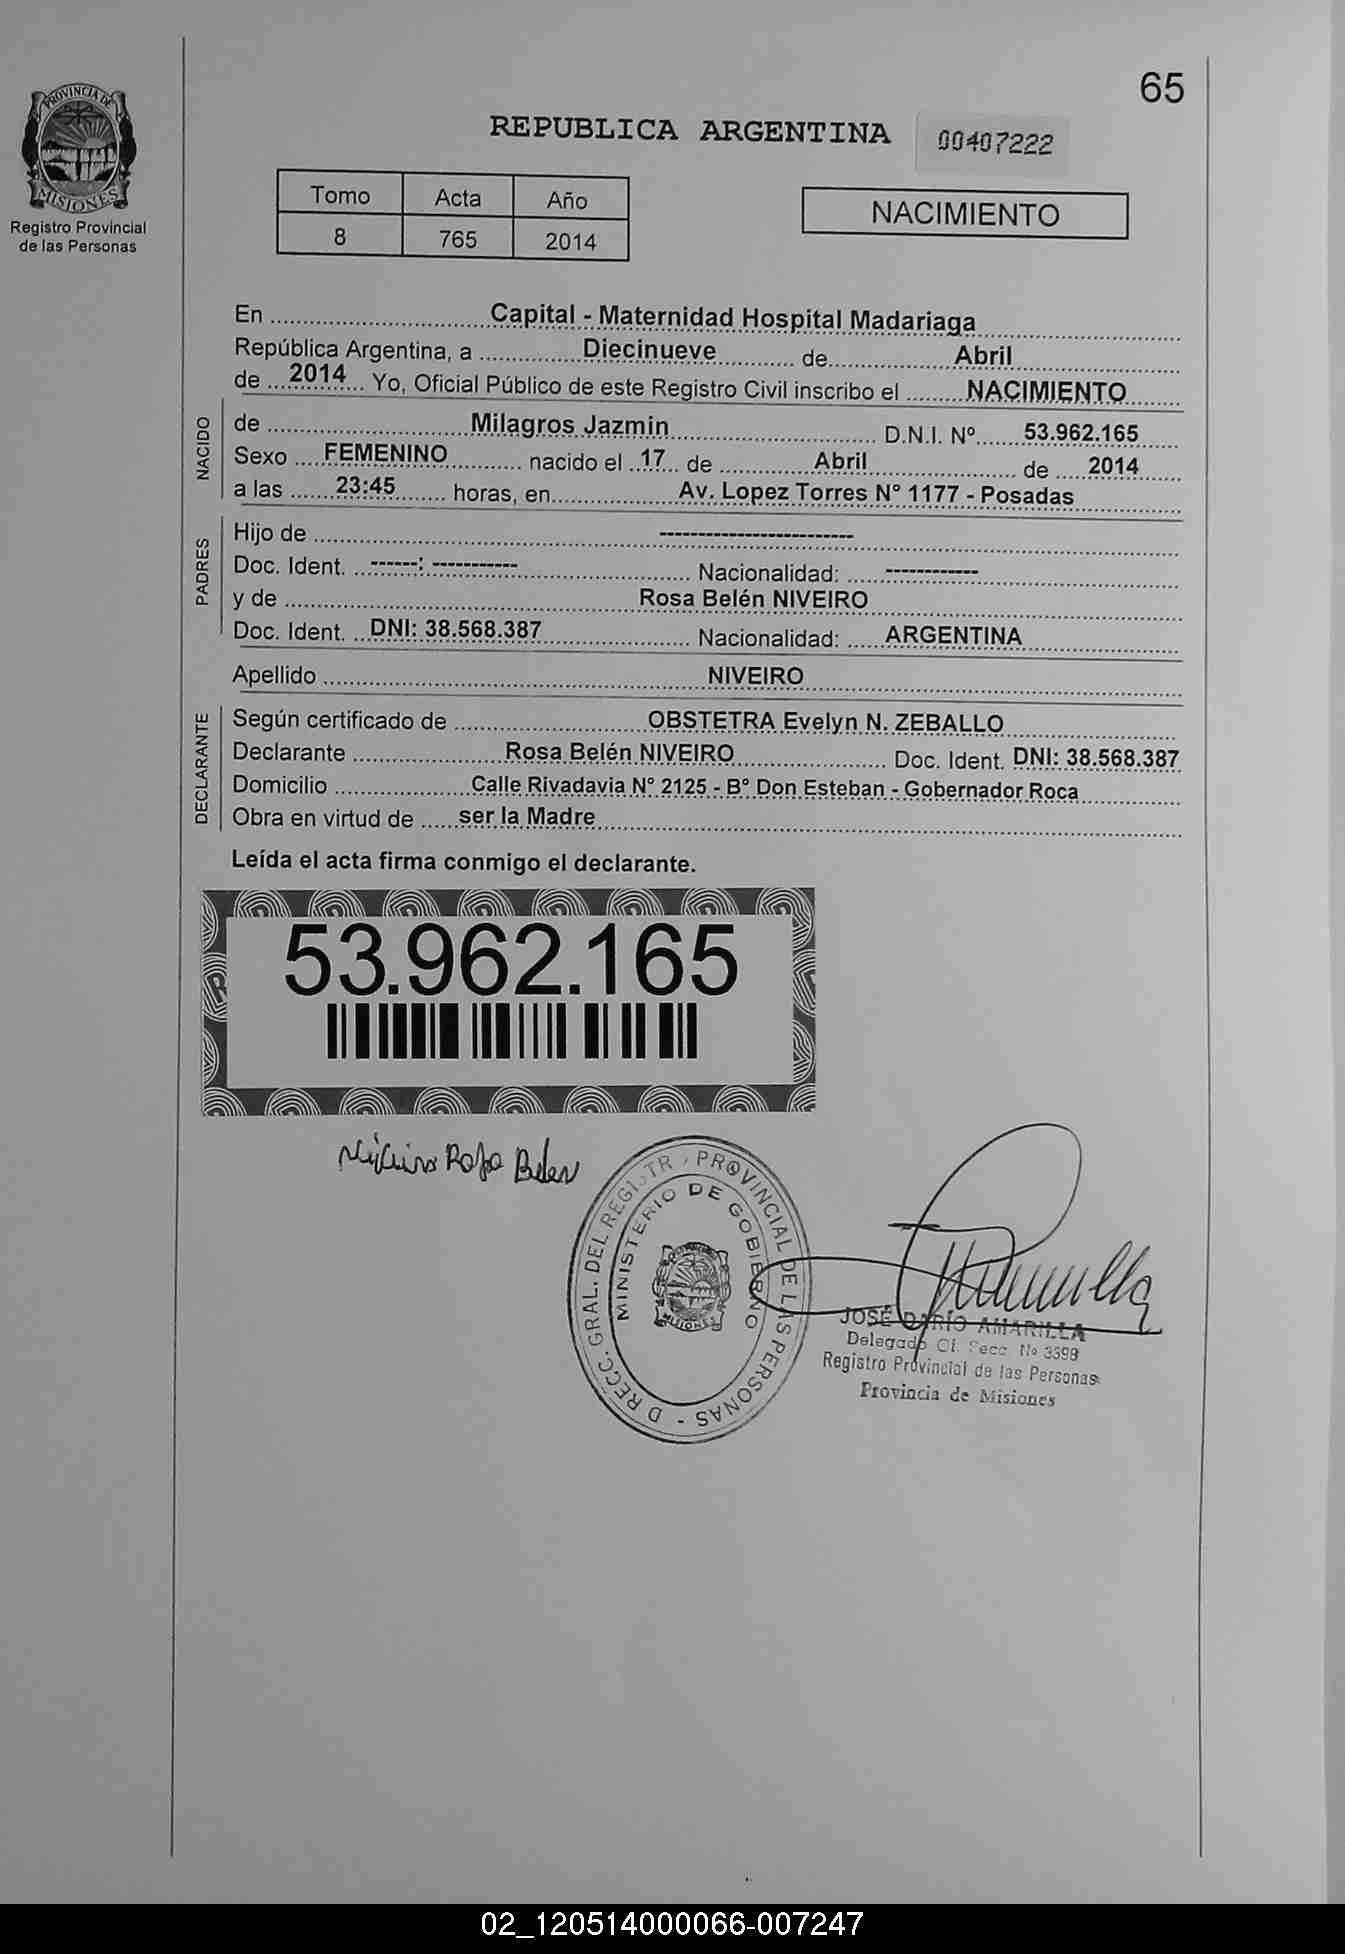 65
PROVINCIA DE
MISIONES
Registro Provincial
de las Personas
REPUBLICA ARGENTINA
00407222
Tomo Acta Año
8 765 2014
NACIMIENTO
En ........ Capital - Maternidad Hospital Madariaga ........
República Argentina, a ........ Diecinueve ........ de ........ Abril ........
de ... 2014 ... Yo, Oficial Público de este Registro Civil inscribo el ........ NACIMIENTO ........
NACIDO
de ........ Milagros Jazmin ........ D.N.I. Nº ...... 53.962.165 ......
Sexo .... FEMENINO ........ nacido el .. 17 .. de ........ Abril ........ de ... 2014 ......
a las ...... 23:45 ...... horas, en ........ Av. Lopez Torres N° 1177 - Posadas ........
PADRES
Hijo de ........ -------------------------
Doc. Ident. ..------: ----------- ........ Nacionalidad: .... ------------
y de ........ Rosa Belén NIVEIRO ........
Doc. Ident. .. DNI: 38.568.387 ........ Nacionalidad: ..... ARGENTINA ........
Apellido ........ NIVEIRO ........
DECLARANTE
Según certificado de ........ OBSTETRA Evelyn N. ZEBALLO ........
Declarante ........ Rosa Belén NIVEIRO ........ Doc. Ident. DNI: 38.568.387
Domicilio ........ Calle Rivadavia N° 2125 - B° Don Esteban - Gobernador Roca ........
Obra en virtud de ..... ser la Madre ........
Leída el acta firma conmigo el declarante.
53.962.165
Niveiro Rosa Belen
D RECC. GRAL. DEL REGISTR PROVINCIAL DE LAS PERSONAS -
MINISTERIO DE GOBIERNO
MISIONES
JOSÉ DARÍO AMARILLA
Delegado Of. Secc. Nº 3398
Registro Provincial de las Personas
Provincia de Misiones
02_120514000066-007247